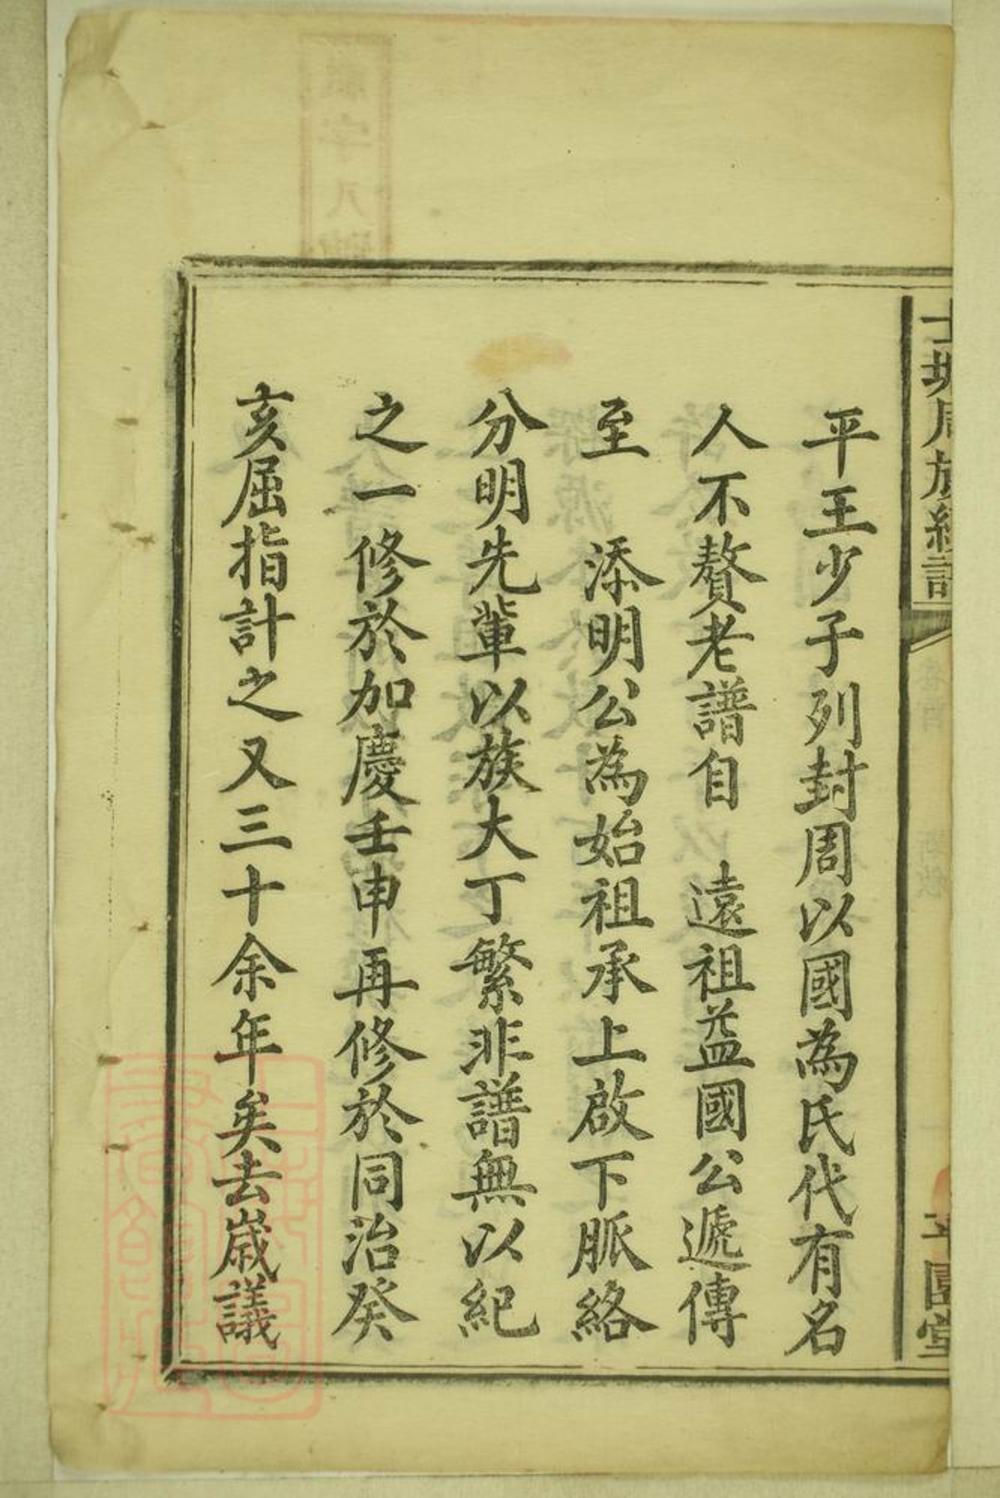 周族
堂
平王少子列封周以國為氏代有名
人不贅老譜自　遠祖益國公遞傳
至　添明公為始祖承上啟下脈絡
分明先輩以族大丁繁非譜無以紀
之一修於加慶壬申再修於同治癸
亥屈指計之又三十余年矣去嵗議